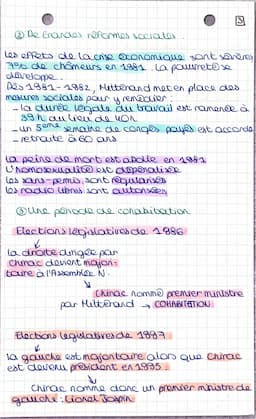 ② De Grandes réformes sociales
Les effets de la crise économique sont sévères
7% de chômeurs en 1981. La pauvreté se
développe.
Dès 1981-1982, Mitterand met en place des
mesures sociales pour y remédier.
- la durée légale du travail est ramenée à
39h au lieu de 40h
- un 5eme semaine de congés payés est accordé
- retraite à 60 ans
La peine de mort est abolie en 1981
L'homosexualité est dépénalisée
Les sans-papiers sont régularisés
Les radio libres sont autorisées
③ Une période de cohabitation
Elections législatives de 1986
la droite dirigée par
Chirac devient majori-
taire à l'Assemblée N.
Chirac nommé premier ministre
par Mitterand → COHABITATION
Elections législatives de 1997
la gauche est majoritaire alors que Chirac
est devenu président en 1995.
Chirac nomme donc un premier ministre de
gauche : Lionel Jospin